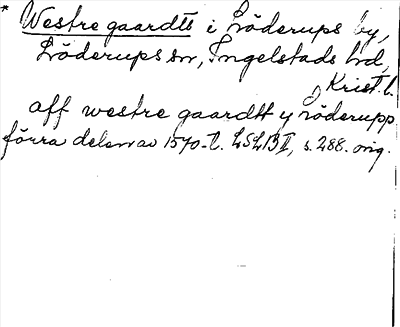 * Westre gaardtt i Löderups by,
Löderups sn, Ingelstads hd,
Krist. l.
aff westre gaardtt y röderupp
förra delen av 1570-t. LSLB II, s. 288. orig.